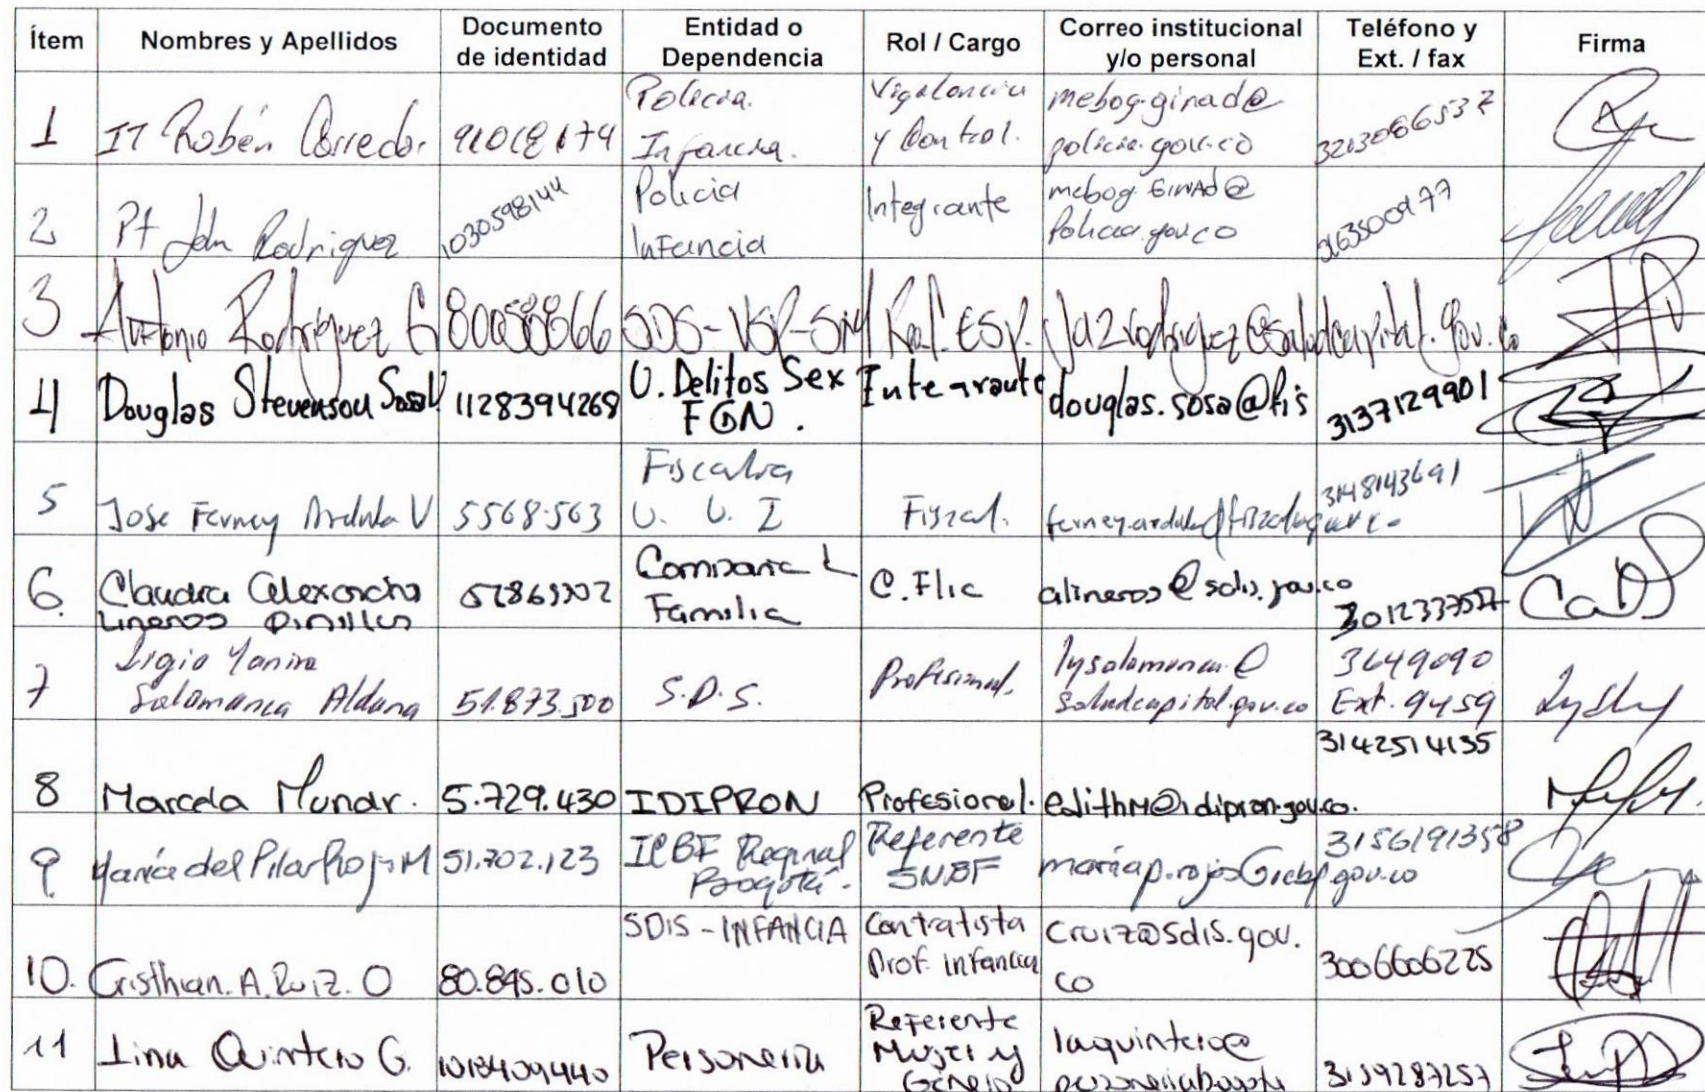 Ítem Nombres y Apellidos Documento de identidad Entidad o Dependencia Rol / Cargo Correo institucional y/o personal Teléfono y Ext. / fax Firma
1 IT Rubén Corredor 91018174 Policia. Infancia. Vigilancia y Control. mebog.ginad@ policia.gov.co
2 Pt John Rodriguez 1030598144 Policia Infancia Integrante mebog GINAD@ Policia.gov.co
3 Antonio Rodriguez G 80058866 SDS-VSP- Esp. Ja2rodriguez@saludcapital.gov.co
4 Douglas Stevenson Sosa V 1128394268 U. Delitos Sex FGN. Integrante douglas.sosa@fis 3137129901
5 Jose Ferney Ardila V 5568.563 Fiscalia U. U. I Fiscal. 3148143691
6. Claudia Alexandra Lineros Pinillos Familia alineros@sdis.gov.co
7 Ligia Yanira Salamanca Aldana 51.873.500 S.D.S. Profesional. lysalamanca@ saludcapital.gov.co 3649090 Ext. 9459
8 Marcela Munar. 5.729.430 IDIPRON Profesional. edithM@idipron.gov.co. 3142514135
9. María del Pilar Rojas M 51.702.123 ICBF Regional Bogotá. Referente SNBF mariap.rojas@icbf.gov.co 3156191358
10. Cristhian. A. Ruiz. O 80.895.010 SDIS - INFANCIA Contratista Prof. infancia cruiz@sdis.gov. co 3006606225
11 Lina Quintero G. Personería Referente Mujer y Género laquintero@ personeriabogota